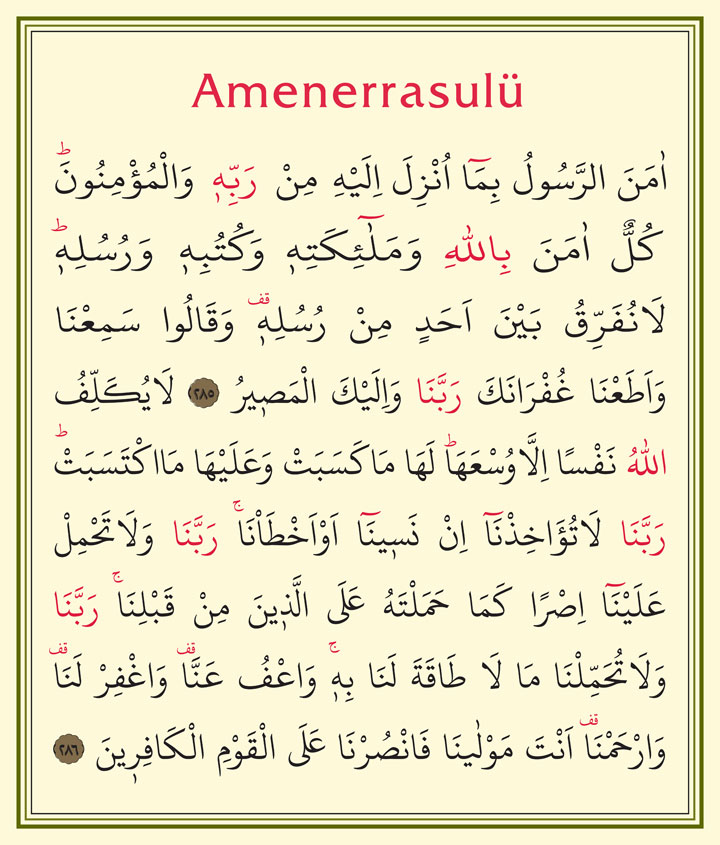 Amenerrasulü
اٰمَنَ الرَّسُولُ بِمَٓا اُنْزِلَ اِلَيْهِ مِنْ رَبِّه۪ وَالْمُؤْمِنُونَۜ
كُلٌّ اٰمَنَ بِاللّٰهِ وَمَلٰٓئِكَتِه۪ وَكُتُبِه۪ وَرُسُلِه۪ۜ
لَانُفَرِّقُ بَيْنَ اَحَدٍ مِنْ رُسُلِه۪ قف وَقَالُوا سَمِعْنَا
وَاَطَعْنَا غُفْرَانَكَ رَبَّنَا وَاِلَيْكَ الْمَص۪يرُ ﴿٢٨٥﴾ لَايُكَلِّفُ
اللّٰهُ نَفْسًا اِلَّاوُسْعَهَاۜ لَهَا مَاكَسَبَتْ وَعَلَيْهَا مَااكْتَسَبَتْۜ
رَبَّنَا لَاتُؤَاخِذْنَٓا اِنْ نَس۪ينَٓا اَوْاَخْطَاْنَاۚ رَبَّنَا وَلَاتَحْمِلْ
عَلَيْنَٓا اِصْرًا كَمَا حَمَلْتَهُ عَلَى الَّذ۪ينَ مِنْ قَبْلِنَاۚ رَبَّنَا
وَلَاتُحَمِّلْنَا مَا لَا طَاقَةَ لَنَا بِه۪ۚ وَاعْفُ عَنَّا قف وَاغْفِرْ لَنَا قف
وَارْحَمْنَا قف اَنْتَ مَوْلٰينَا فَانْصُرْنَا عَلَى الْقَوْمِ الْكَافِر۪ينَ ﴿٢٨٦﴾